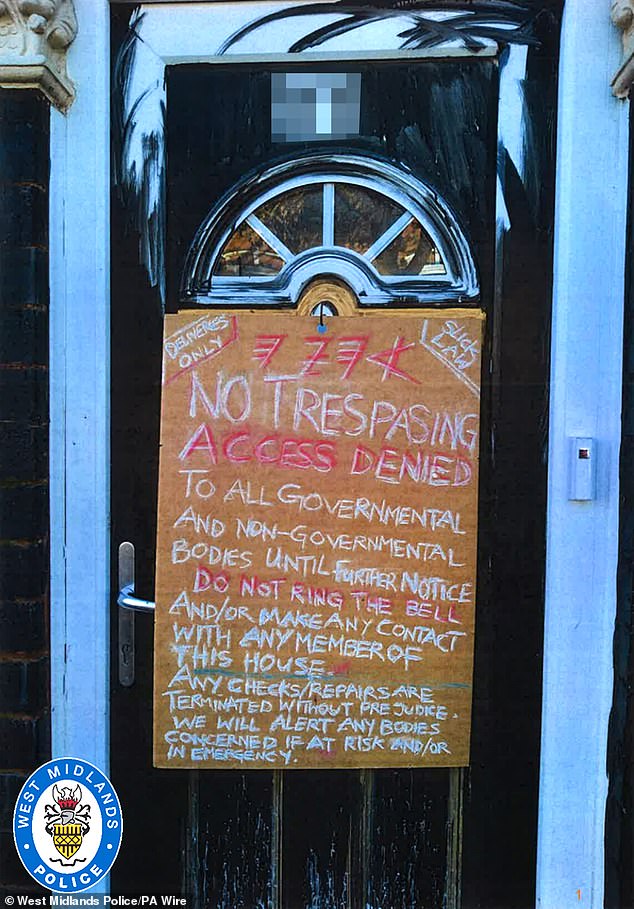 DELIVERIES
ONLY
SLICK
LAW
NO TRESPASING
ACCESS DENIED
TO ALL GOVERNMENTAL
AND NON-GOVERNMENTAL
BODIES UNTIL FURTHER NOTICE
DO NOT RING THE BELL
AND/OR MAKE ANY CONTACT
WITH ANY MEMBER OF
THIS HOUSE.
ANY CHECKS/REPAIRS ARE
TERMINATED WITHOUT PREJUDICE.
WE WILL ALERT ANY BODIES
CONCERNED IF AT RISK AND/OR
IN EMERGENCY.
WEST MIDLANDS
POLICE
1
© West Midlands Police/PA Wire